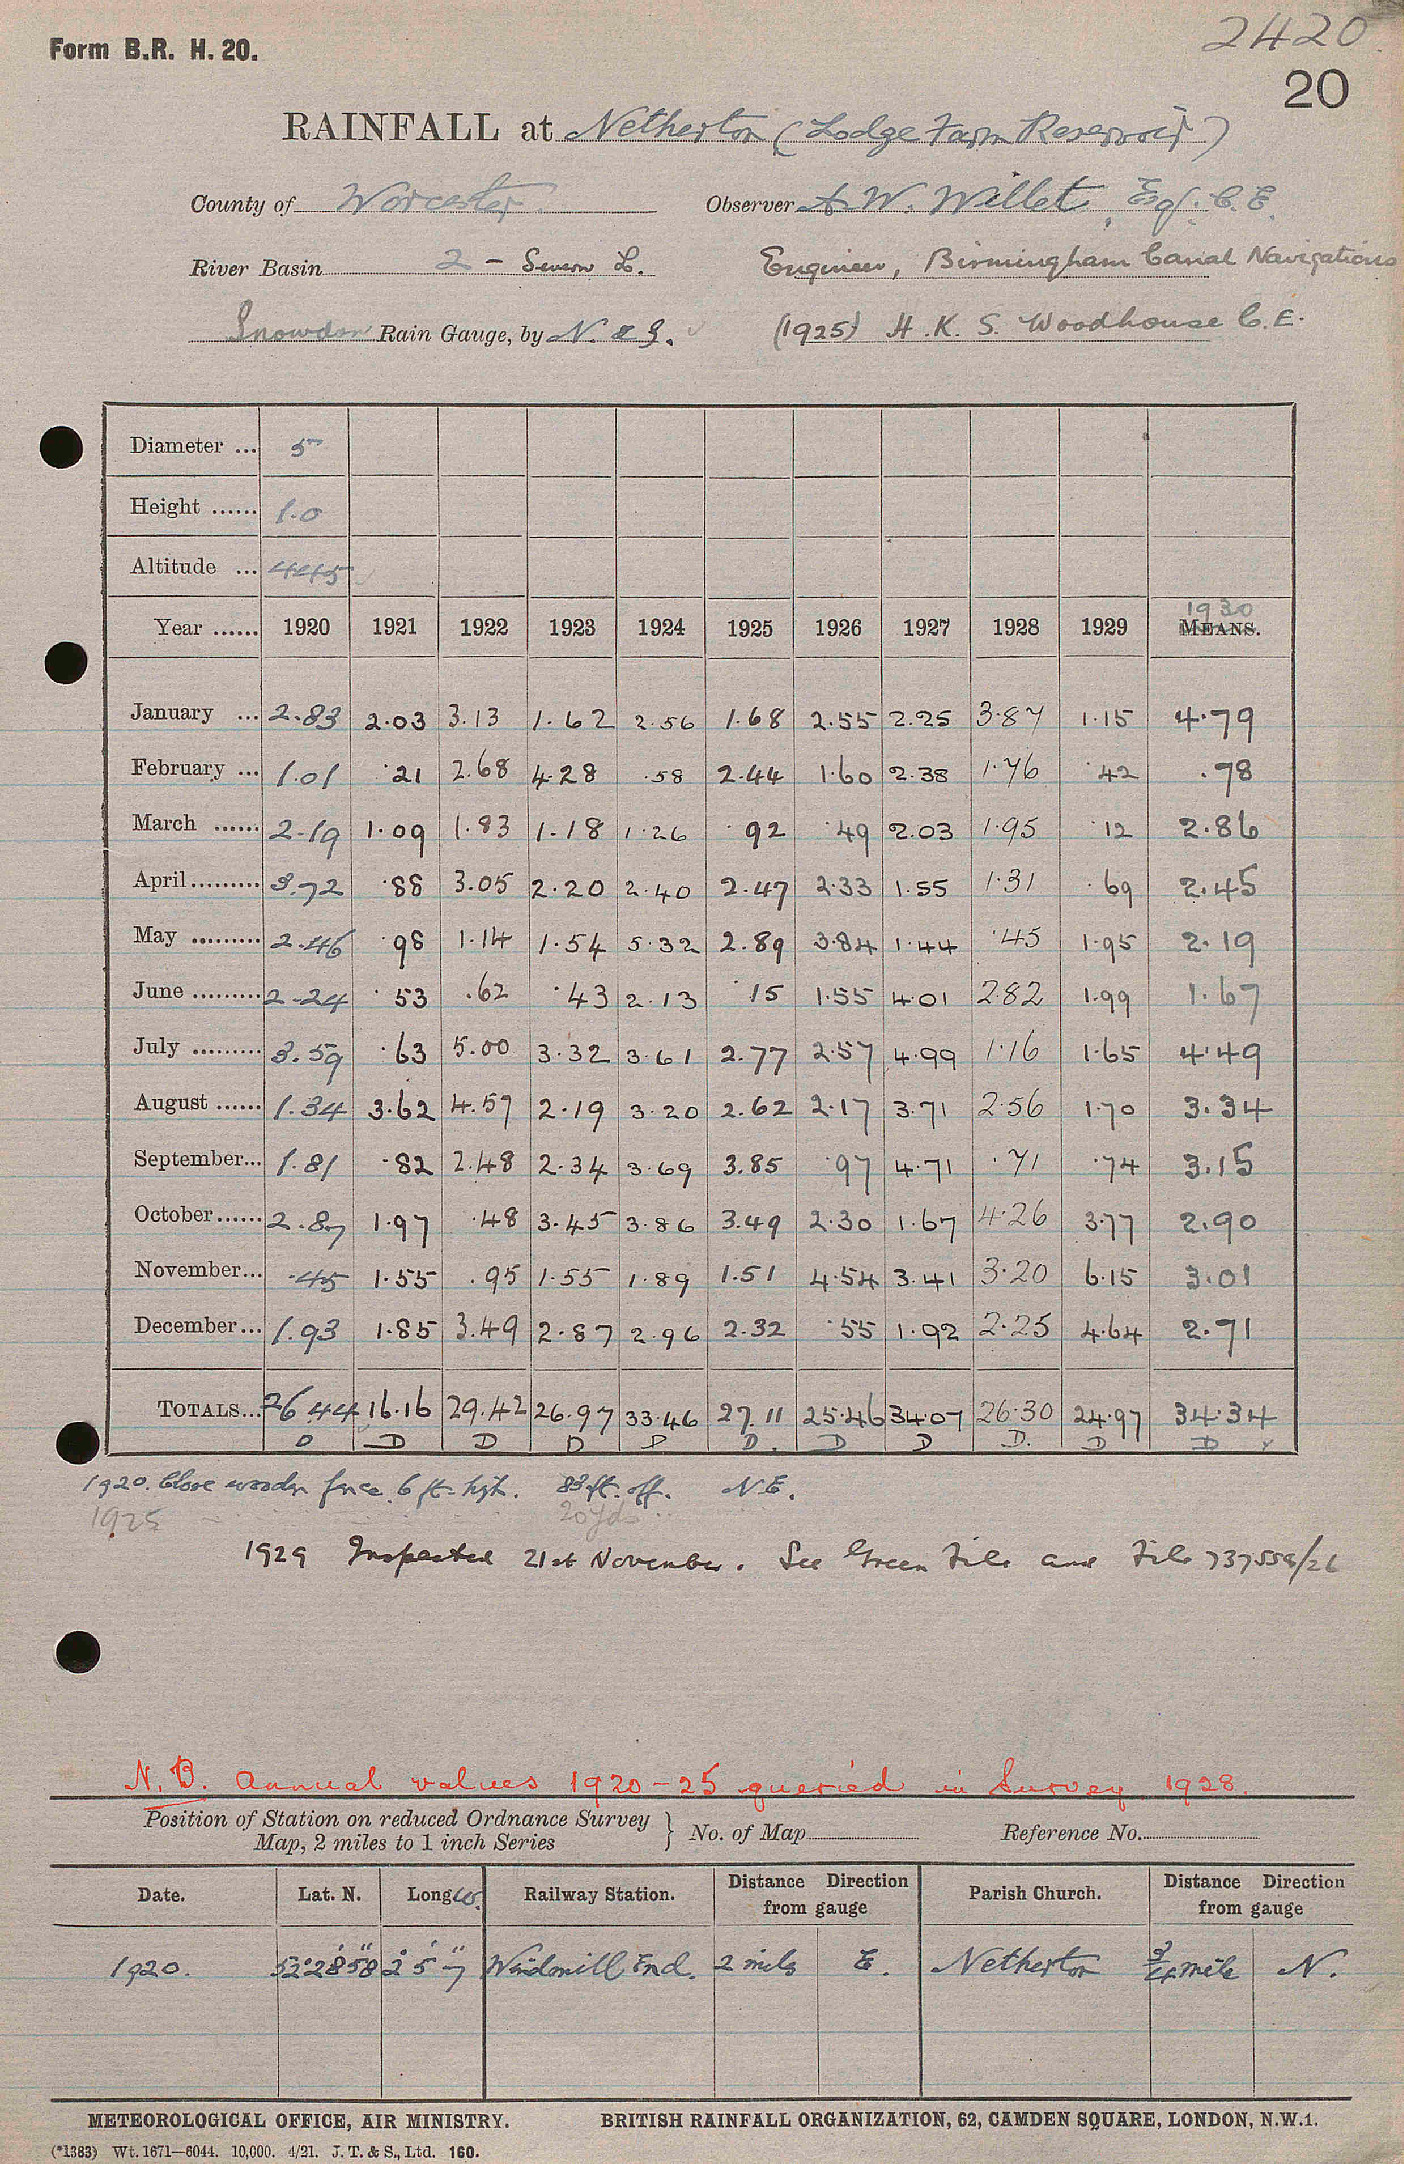 Form B.R. H. 20.
2420
20
RAINFALL at Netherton (Lodge Farm Reservoir)
County of Worcester Observer A. W. Willet, Esq. C.E.
River Basin 2 - Severn L. Engineer, Birmingham Canal Navigations
Snowdon Rain Gauge, by N. & Z. (1925) H. K. S. Woodhouse C.E.
Diameter ... 5
Height ...... 1.0
Altitude ... 445
1930
Year ...... 1920 1921 1922 1923 1924 1925 1926 1927 1928 1929 MEANS.
January ... 2.83 2.03 3.13 1.62 2.56 1.68 2.55 2.25 3.87 1.15 4.79
February ... 1.01 .21 2.68 4.28 .58 2.44 1.60 2.38 1.76 .42 .78
March ...... 2.19 1.09 1.83 1.18 1.26 .92 .49 2.03 1.95 .12 2.86
April ......... 3.72 .88 3.05 2.20 2.40 2.47 2.33 1.55 1.31 .69 2.45
May ......... 2.46 .98 1.14 1.54 5.32 2.89 3.84 1.44 .45 1.95 2.19
June ......... 2.24 .53 .62 .43 2.13 .15 1.55 4.01 2.82 1.99 1.67
July ......... 3.59 .63 5.00 3.32 3.61 2.77 2.57 4.99 1.16 1.65 4.49
August ...... 1.34 3.62 4.57 2.19 3.20 2.62 2.17 3.71 2.56 1.70 3.34
September... 1.81 .82 2.48 2.34 3.69 3.85 .97 4.71 .71 .74 3.15
October ...... 2.87 1.97 .48 3.45 3.86 3.49 2.30 1.67 4.26 3.77 2.90
November... .45 1.55 .95 1.55 1.89 1.51 4.54 3.41 3.20 6.15 3.01
December... 1.93 1.85 3.49 2.87 2.96 2.32 .55 1.92 2.25 4.64 2.71
TOTALS... 26.44 16.16 29.42 26.97 33.46 27.11 25.46 34.07 26.30 24.97 34.34
D D D D D D. D D D. D D
1920. Close wooden fence 6 ft. high. 83 ft. off. N.E.
1925 20 yds
1929 Inspected 21st November. See Green File and File 737558/26
N.B. Annual values 1920-25 queried in Survey 1928.
Position of Station on reduced Ordnance Survey
Map, 2 miles to 1 inch Series } No. of Map Reference No.
Date. Lat. N. Long W. Railway Station. Distance Direction from gauge Parish Church. Distance Direction from gauge
1920. 52°28'58" 2°5'7" Windmill End. 2 miles E. Netherton 3/4 mile N.
METEOROLOGICAL OFFICE, AIR MINISTRY. BRITISH RAINFALL ORGANIZATION, 62, CAMDEN SQUARE, LONDON, N.W.1.
(*1383) Wt. 1671—6044. 10,000. 4/21. J. T. & S., Ltd. 160.